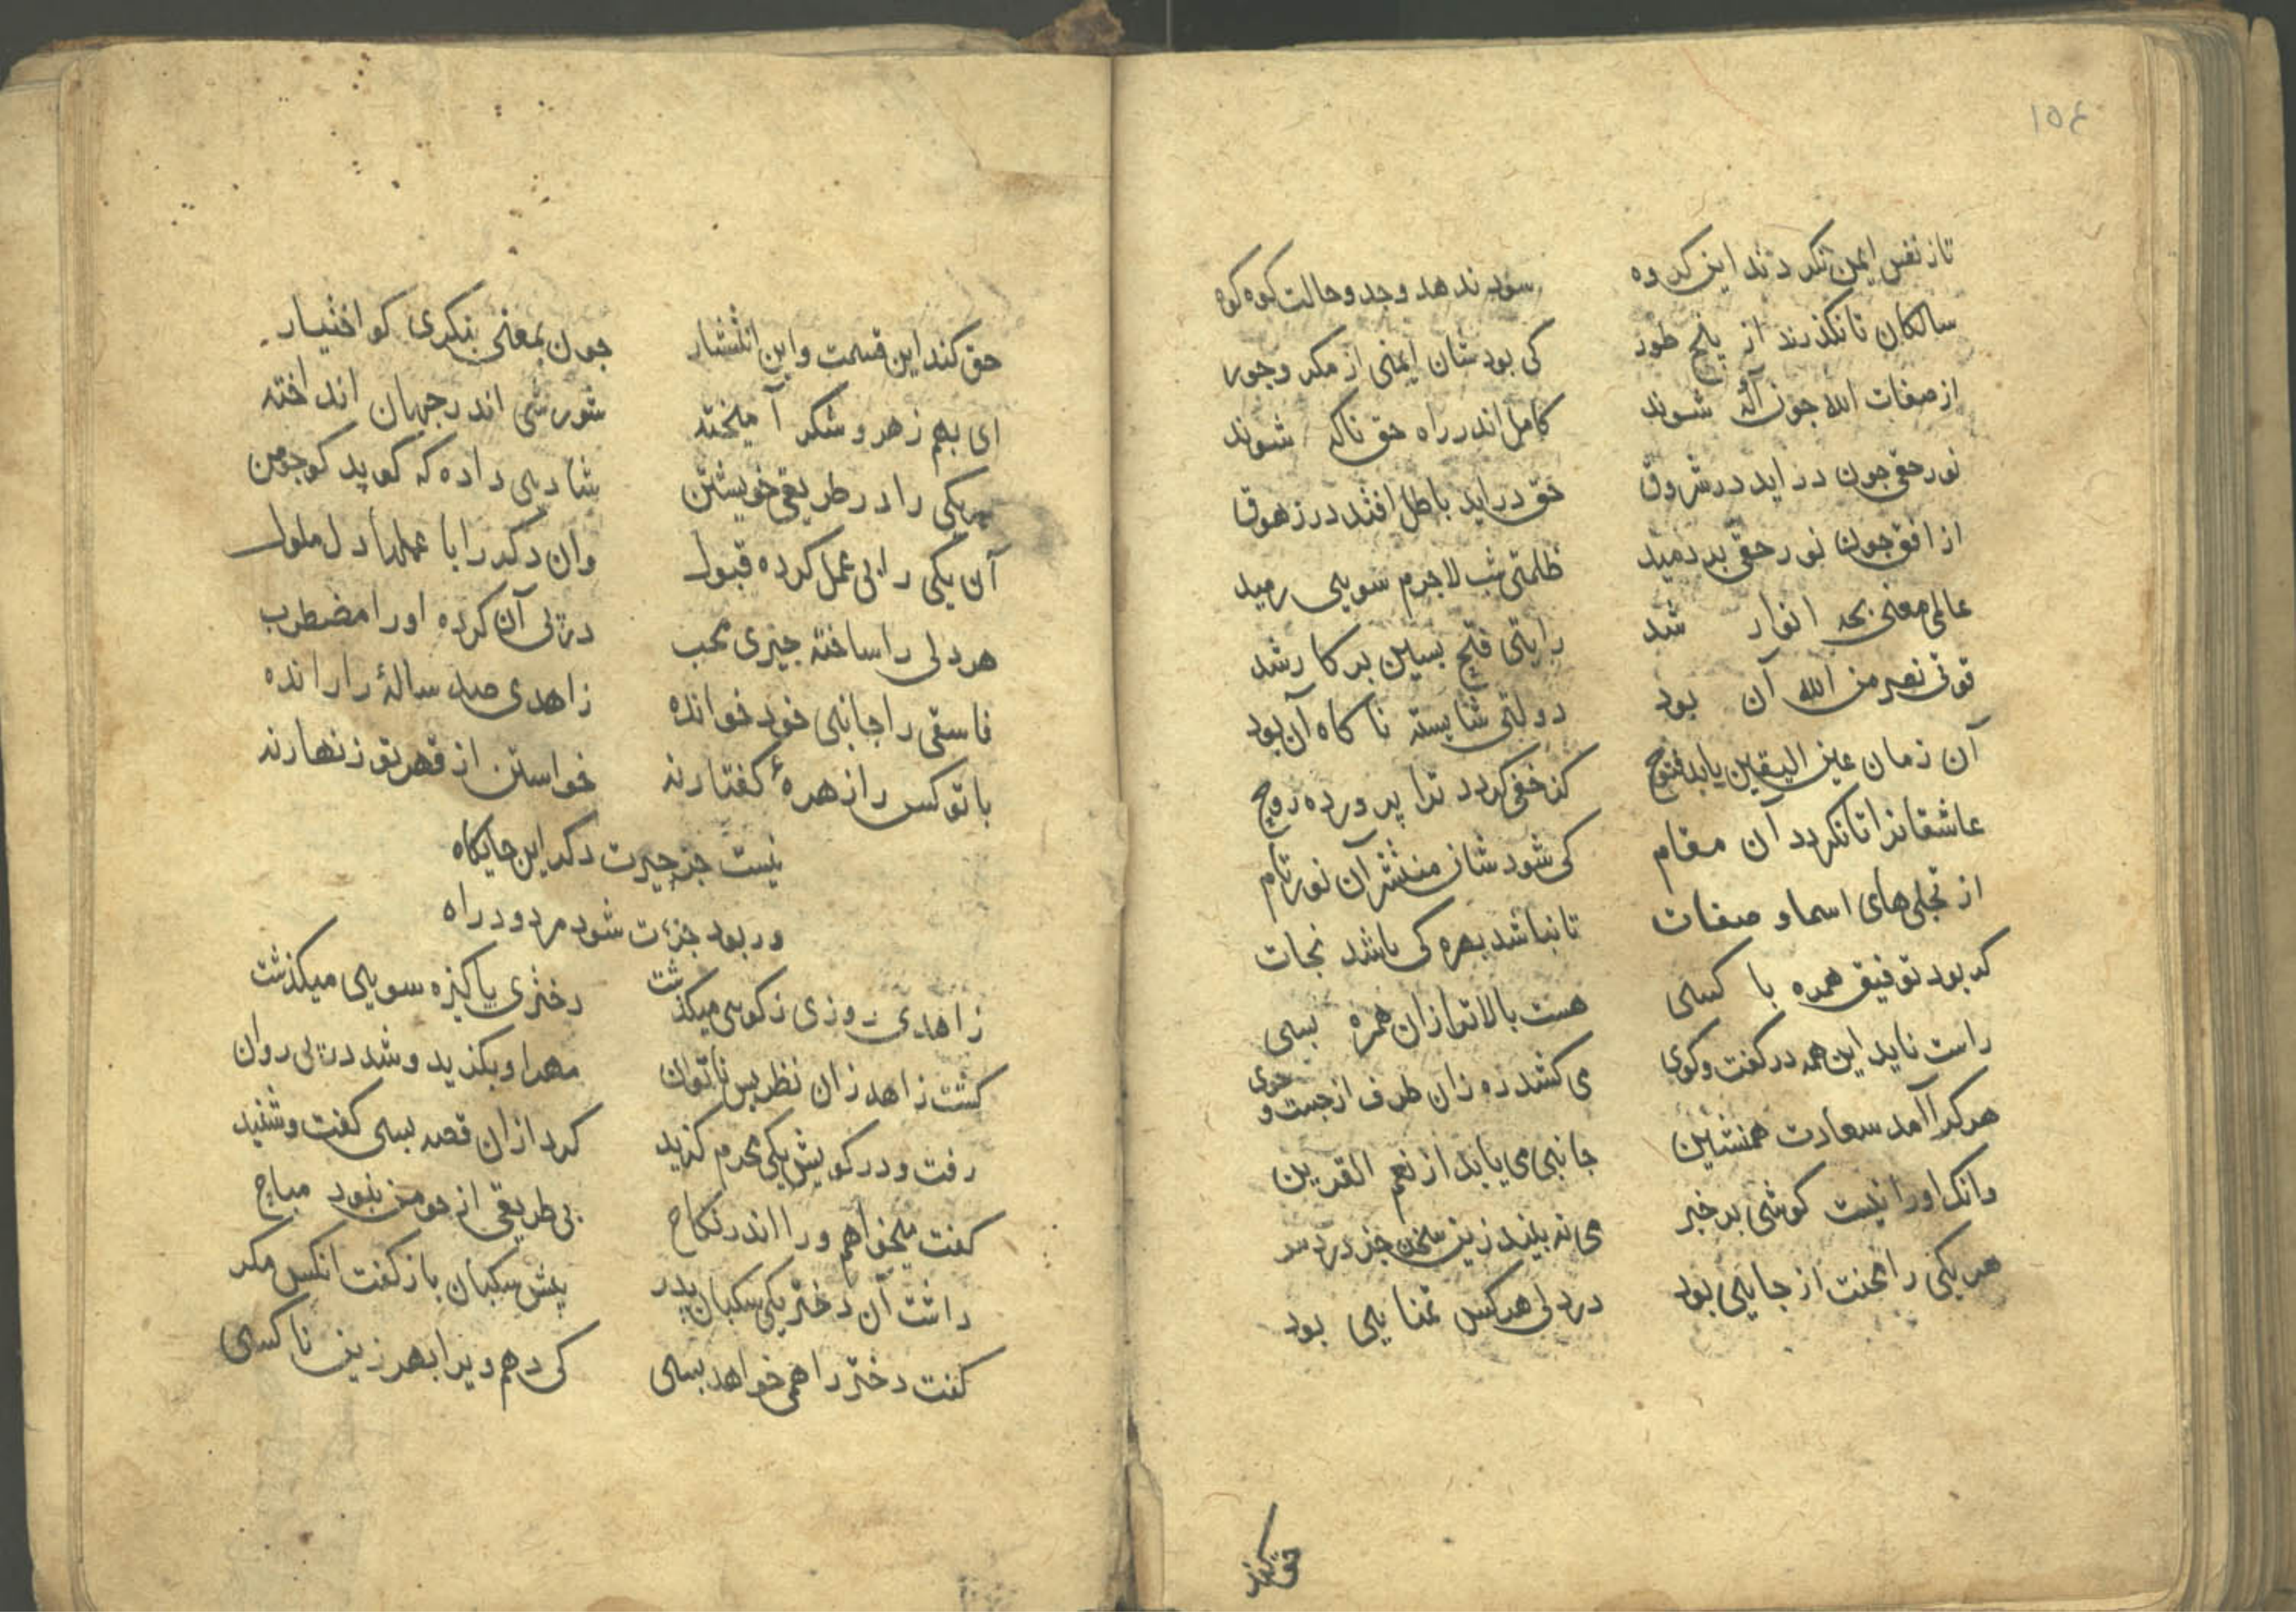 ١٥٤
تا ز نفس ایمن نکردند این کروه    سود ندهد وجد و حالت کوه کوه
سالکان تا نکذرند از پنج طور    کی بود شان ایمنی از مکر وجور
از صفات الله جون آکه شوند    کامل اندر راه حق ناکه شوند
نور حق جون در اید در شروق    حق در اید باطل افتد در زهوق
از افق جون نور حق بر دمید    ظلمتی شب لاجرم سویی رمید
عالمی معنی بحر انوار شد    رایتی فتح بسین بر کار شد
قوتی نصر من الله آن بود    دولتی شایسته ناکاه آن بود
آن زمان عین الیقین یابد فتوح    کز خفی کردد ترا پرورده روح
عاشقانرا تا نکردد آن مقام    کی شود شان منتشر آن نور تام
از تجلی های اسما و صفات    تا نباشد بهره کی باشد نجات
کر بود توفیق همره با کسی    هست بالاتر ازان همره بسی
راست ناید این همه در کفت وکوی    می کشد ره زان طرف از جست و جوی
هر کرا آمد سعادت همنشین    جانبی می یابد از نعم القرین
وانک اورا نیست کوشی بر خبر    می نه بیند زین سخن جز درد سر
هر یکی را محنت از جایی بود    در دلی هر کس تمنایی بود
حق کند
حق کند این قسمت و این انتشار    جون بمعنی بنکری کو اختیار
ای بهم زهر و شکر آمیخته    شورشی اندر جهان انداخته
هر یکی را در طریقی خویشتن    شادیی داده که کوید کو جو من
آن یکی را بی عمل کرده قبول    وان دکر را با عملها دل ملول
هر دلی را ساخته جیزی محب    در پی آن کرده اورا مضطرب
فاسقی را جانبی خود خوانده    زاهدی صد سالهٔ را رانده
با تو کس را زهرهٔ کفتار نه    خواستن از قهر تو زنهار نه
نیست جز حیرت دکر این جایکاه
ور بود جزءت شود مردود راه
زاهدی روزی ز کویی میکذشت    دختری پاکیزه سویی میکذشت
کشت زاهد زان نظر بس ناتوان    مهر او بکزید و شد در پی روان
رفت و در کویش یکی محرم کزید    کرد ازان قصه بسی کفت وشنید
کفت میخواهم ورا اندر نکاح    بی طریقی از جو من نبود مباح
داشت آن دختر یکی سکبان پدر    پیش سکبان باز کفت انکس مکر
کفت دختر را همی خواهد بسی    کی دهم ویرا بهر زین ناکسی